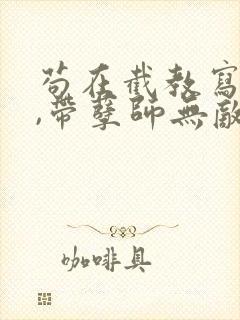 苟在截教寫
,帶孽師無敵
咖啡具